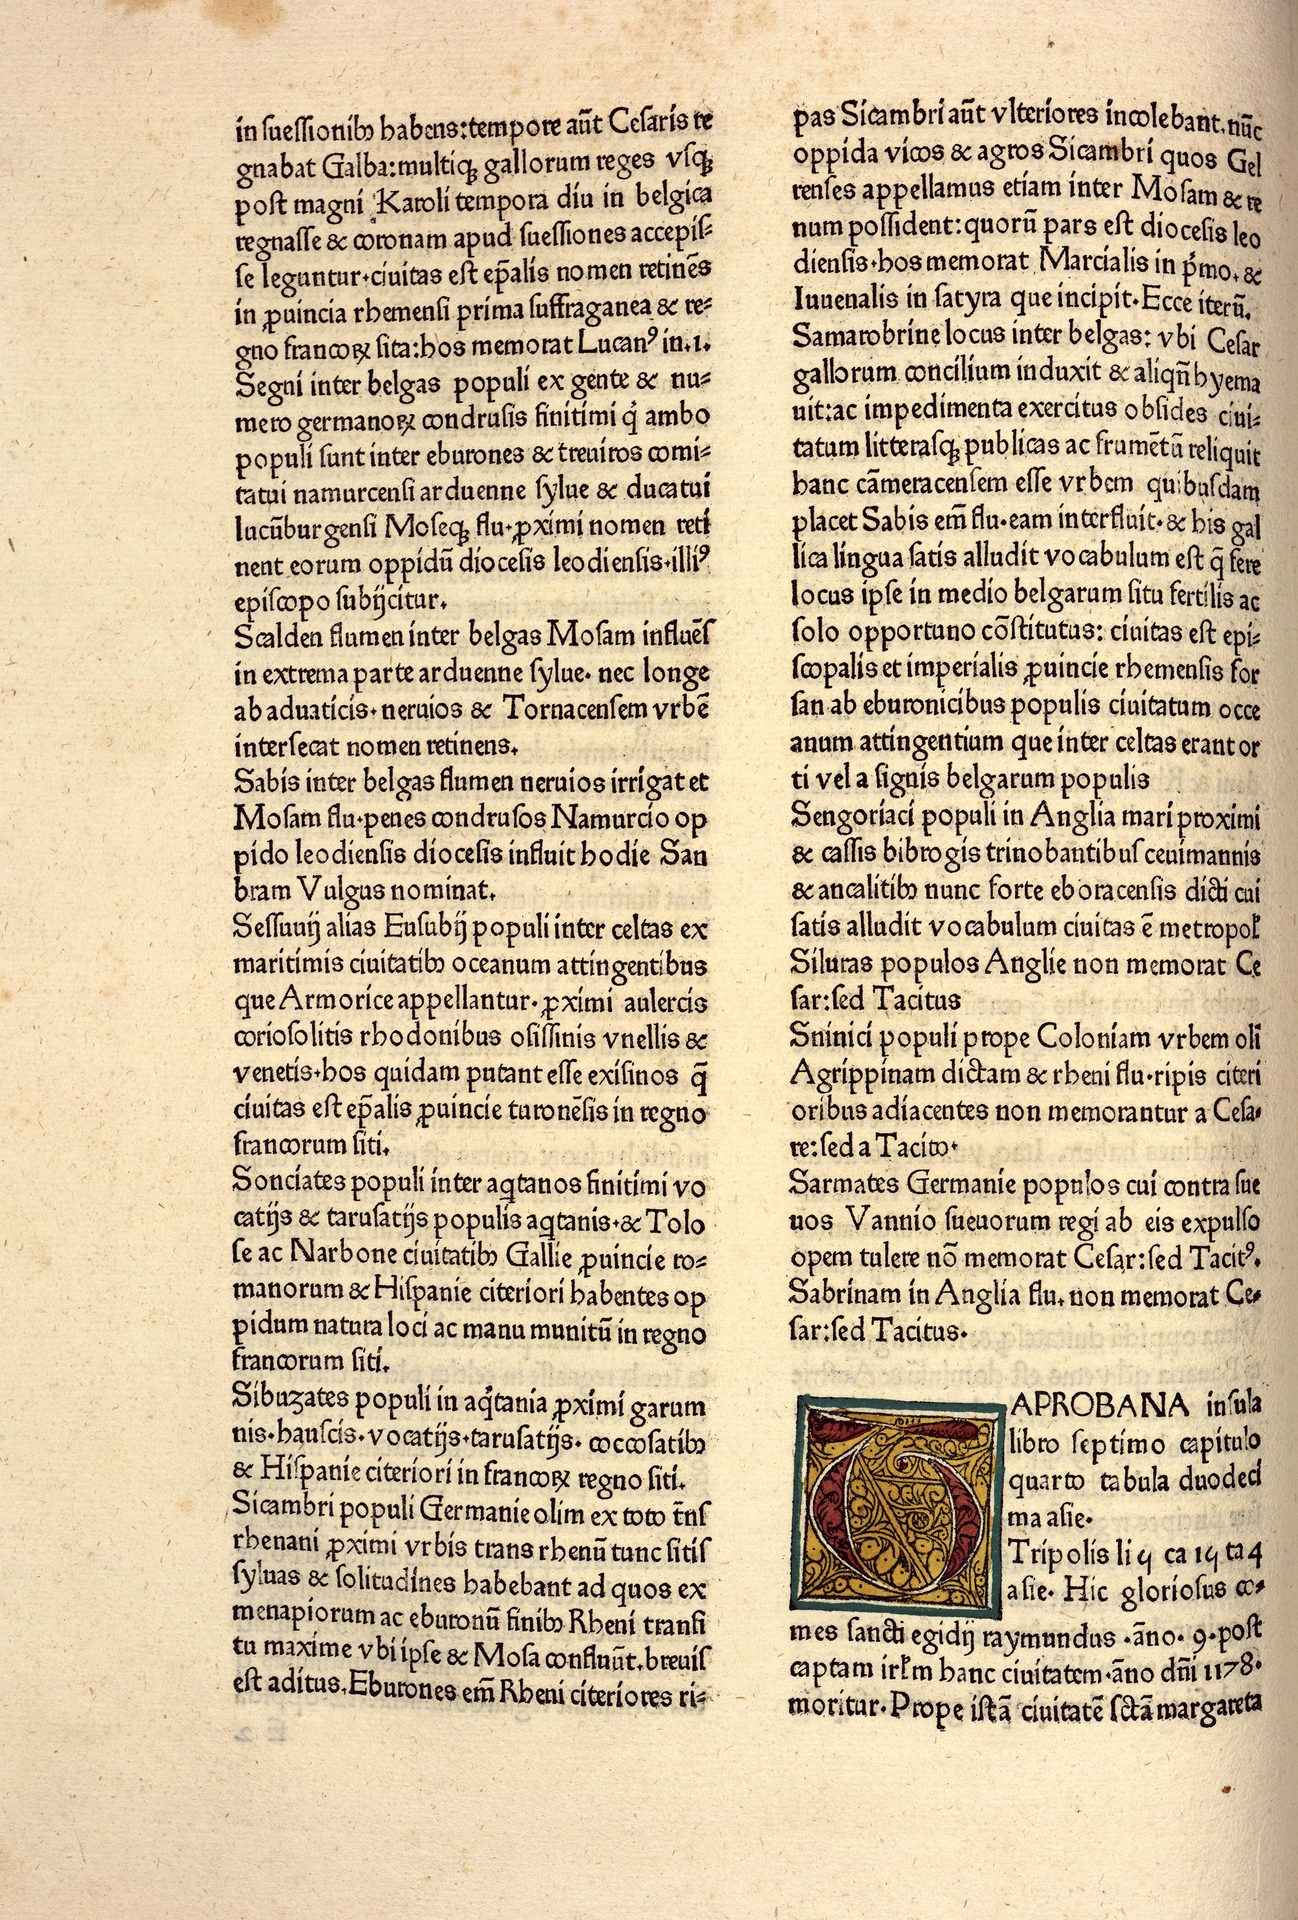 in suessionibꝫ habens:tempore aūt Cesaris re
gnabat Galba:multiqꝫ gallorum reges vsqꝫ
post magni Karoli tempora diu in belgica
regnasse & coronam apud suessiones accepis⸗
se leguntur.ciuitas est ep̄alis nomen retinēs
in ꝓuincia rhemensi prima suffraganea & re⸗
gno francoꝝ sita:hos memorat Lucanꝰ in.1.
Segni inter belgas populi ex gente & nu⸗
mero germanoꝝ condrusis finitimi q̇ ambo
populi sunt inter eburones & treuiros comi⸗
tatui namurcensi arduenne sylue & ducatui
lucūburgensi Moseqꝫ flu.ꝓximi nomen reti
nent eorum oppidū diocesis leodiensis.illiꝰ
episcopo subijcitur.
Scalden flumen inter belgas Mosam influēs
in extrema parte arduenne sylue. nec longe
ab aduaticis.neruios & Tornacensem vrbē
intersecat nomen retinens.
Sabis inter belgas flumen neruios irrigat et
Mosam flu.penes condrusos Namurcio op
pido leodiensis diocesis influit hodie San
bram Vulgus nominat.
Sessuuij alias Eusubij populi inter celtas ex
maritimis ciuitatibꝫ oceanum attingentibus
que Armorice appellantur.ꝓximi aulercis
coriosolitis rhodonibus osissinis vnellis &
venetis.hos quidam putant esse exisinos q̄
ciuitas est ep̄alis ꝓuincie turonēsis in regno
francorum siti.
Sonciates populi inter aq̇tanos finitimi vo
catijs & tarusatijs populis aq̇tanis.& Tolo
se ac Narbone ciuitatibꝫ Gallie ꝓuincie ro⸗
manorum & Hispanie citeriori habentes op
pidum natura loci ac manu munitū in regno
francorum siti.
Sibuzates populi in aq̇tania ꝓximi garum
nis.hauscis.vocatijs.tarusatijs. cocosatibꝫ
& Hispanie citeriori in francoꝝ regno siti.
Sicambri populi Germanie olim ex toto t̄ns
rhenani ꝓximi vrbis trans rhenū tunc sitis
syluas & solitudines habebant ad quos ex
menapiorum ac eburonū finibꝫ Rheni transi
tu maxime vbi ipse & Mosa confluūt.breuis
est aditus.Eburones em̄ Rheni citeriores ri⸗
pas Sicambri aūt vlteriores incolebant.nūc
oppida vicos & agros Sicambri quos Gel
renses appellamus etiam inter Mosam & re
num possident:quorū pars est diocesis leo
diensis.hos memorat Marcialis in pͥmo. &
Iuuenalis in satyra que incipit.Ecce iterū.
Samarobrine locus inter belgas: vbi Cesar
gallorum concilium induxit & aliqn̄ hyema
uit:ac impedimenta exercitus obsides ciui⸗
tatum litterasqꝫ publicas ac frumētū reliquit
hanc cāmeracensem esse vrbem quibusdam
placet Sabis em̄ flu.eam interfluit.& his gal
lica lingua satis alludit vocabulum est q̄ fere
locus ipse in medio belgarum situ fertilis ac
solo opportuno cōstitutus: ciuitas est epi⸗
scopalis et imperialis ꝓuincie rhemensis for
san ab eburonicibus populis ciuitatum occe
anum attingentium que inter celtas erant or
ti vel a signis belgarum populis
Sengoriaci populi in Anglia mari proximi
& cassis bibrogis trinobantibus ceuimannis
& ancalitibꝫ nunc forte eboracensis dicti cui
satis alludit vocabulum ciuitas ē metropoł
Siluras populos Anglie non memorat Ce
sar:sed Tacitus
Sninici populi prope Coloniam vrbem oli
Agrippinam dictam & rheni flu.ripis citeri
oribus adiacentes non memorantur a Cesa⸗
re:sed a Tacito.
Sarmates Germanie populos cui contra sue
uos Vannio sueuorum regi ab eis expulso
opem tulere nō memorat Cesar:sed Tacitꝰ.
Sabrinam in Anglia flu. non memorat Ce⸗
sar:sed Tacitus.
TAPROBANA insula
libro septimo capitulo
quarto tabula duodeci
ma asie.
Tripolis li 5 ca 15 ta 4
asie. Hic gloriosus co⸗
mes sancti egidij raymundus .āno. 9.post
captam irłm hanc ciuitatem.āno dn̄i 1178.
moritur.Prope istā ciuitatē sctā margareta